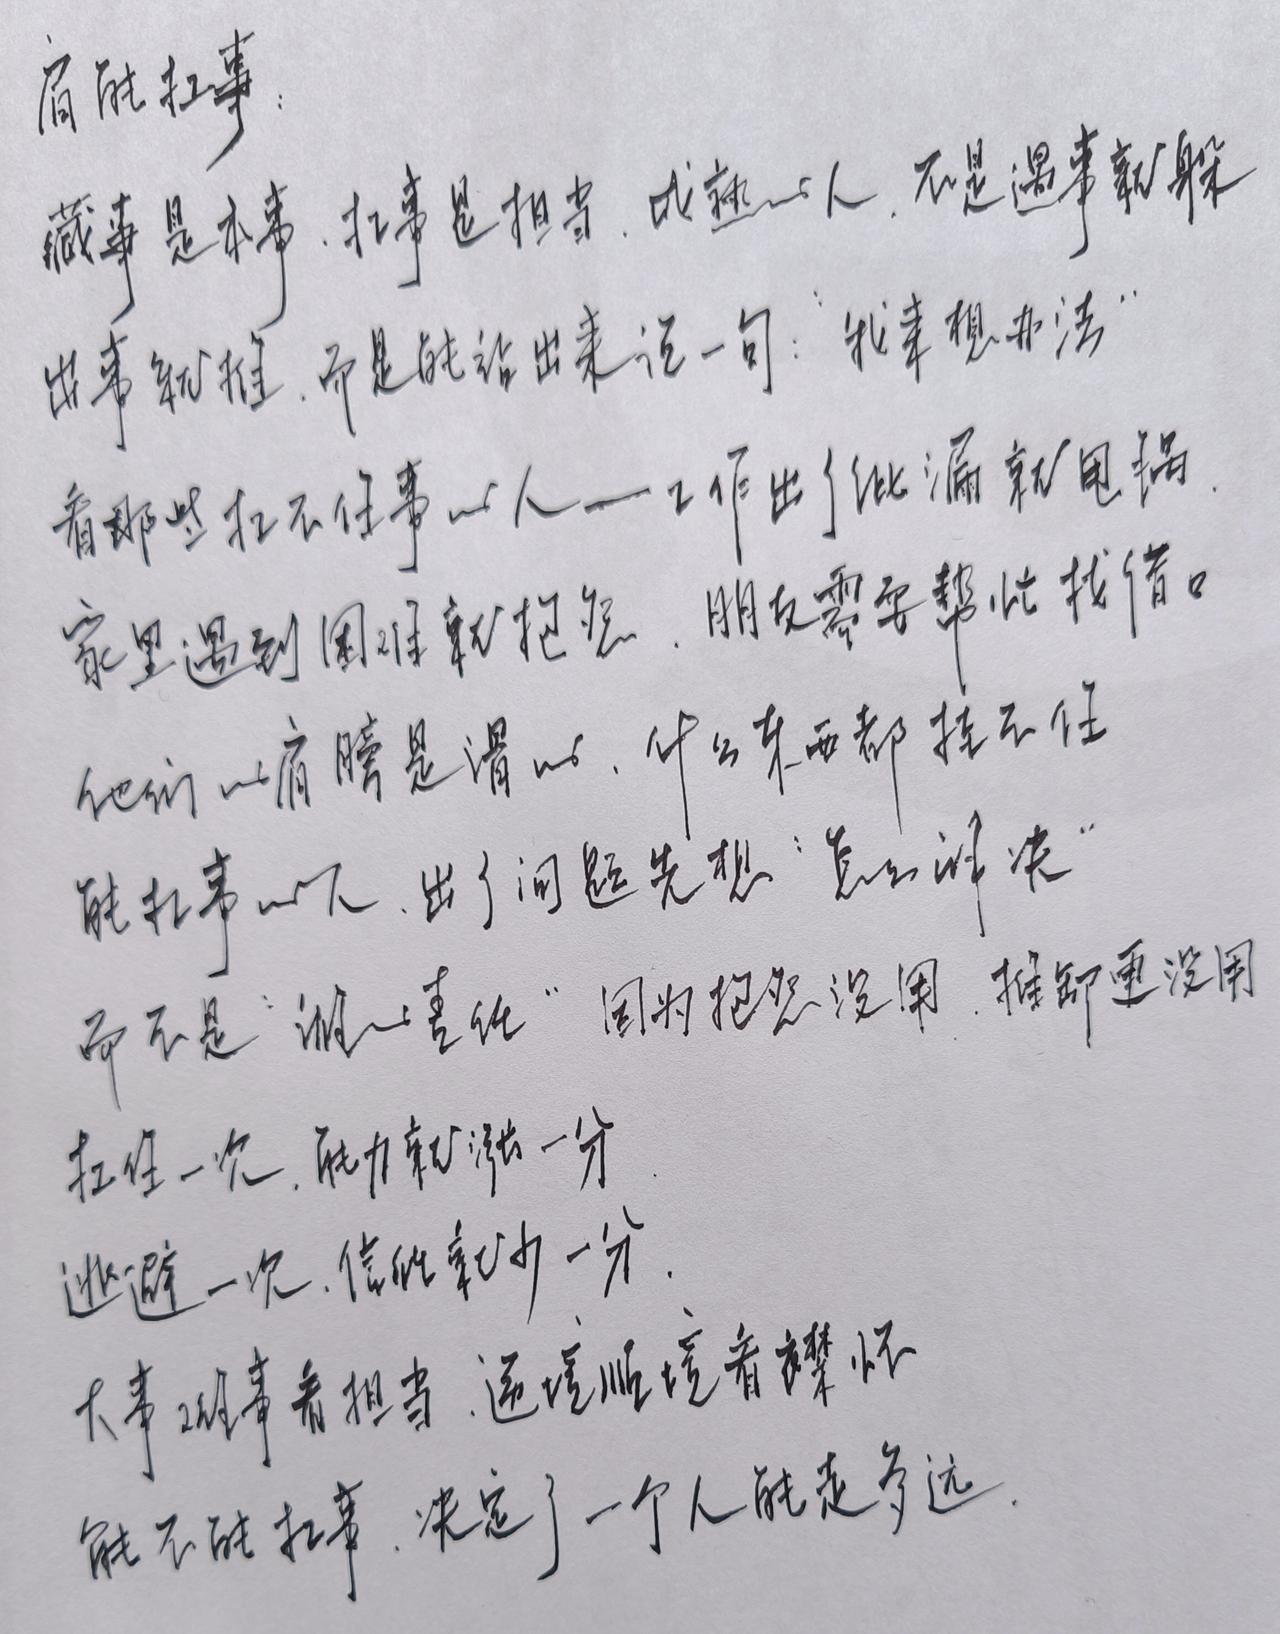 肩能扛事：
藏事是本事、扛事是担当、成熟的人、不是遇事就躲
出事就推、而是能站出来说一句：“我来想办法”
看那些扛不住事的人——工作出了纰漏就甩锅、
家里遇到困难就抱怨、朋友需要帮忙找借口
他们的肩膀是滑的、什么东西都挂不住
能扛事的人、出了问题先想“怎么解决”
而不是“谁的责任”因为抱怨没用、推卸更没用
扛住一次、能力就涨一分
逃避一次、信任就少一分.
大事难事看担当、逆境顺境看襟怀
能不能扛事、决定了一个人能走多远.